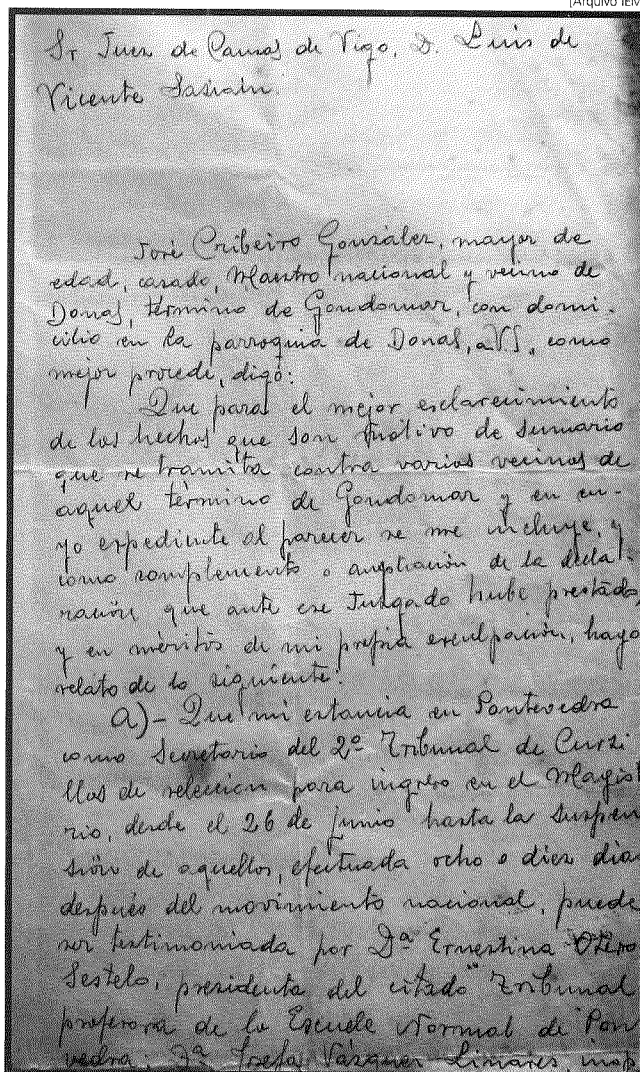 [Arquivo IEM
Sr Juez de Causas de Vigo, D. Luis de
Vicente Sasiain.
José Cribeiro González, mayor de
edad, casado, Maestro nacional y vecino de
Donas, término de Gondomar, con domi-
cilio en la parroquia de Donas, a VS, como
mejor procede, digo:
Que para el mejor esclarecimiento
de los hechos que son motivo de sumario
que se tramita contra varios vecinos de
aquel término de Gondomar y en cu-
yo expediente al parecer se me incluye, y
como complemento o ampliación de la decla-
ración que ante ese Juzgado hube prestado
y en méritos de mi propia exculpación, hago
relato de lo siguiente:
a)- Que mi estancia en Pontevedra
como Secretario del 2º Tribunal de Cursi
llos de selección para ingreso en el Magis
rio, desde el 26 de junio hasta la suspen
sión de aquellos, efectuada ocho o diez dia
después del movimiento nacional, puede
ser testimoniada por Dª Ernestina Otero
Sestelo, presidenta del citado Tribunal
profesora de la Escuela Normal de Pon
vedra; Dª Josefa Vázquez Linares, insp